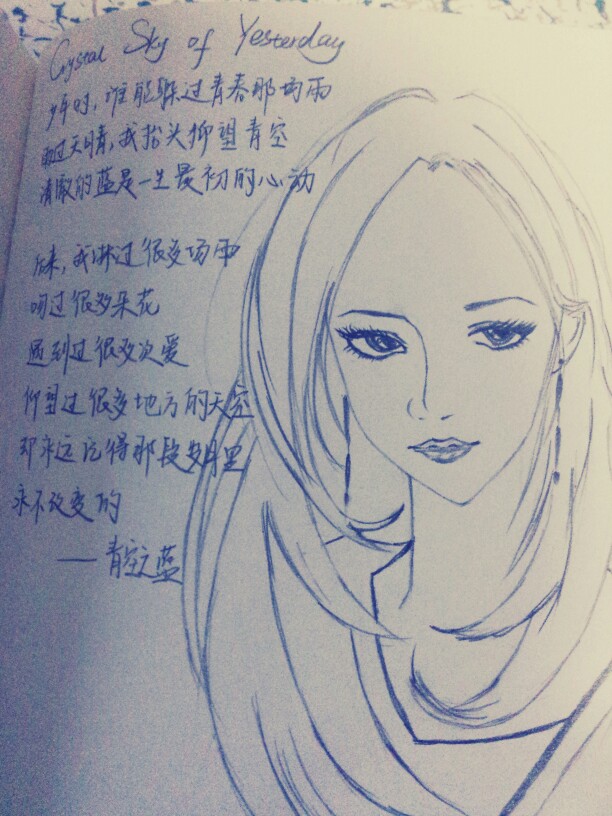 Crystal Sky of Yesterday
少年时,谁能躲过青春那场雨
雨过天晴,我抬头仰望青空
清澈的蓝是一生最初的心动
后来,我淋过很多场雨
吻过很多朵花
遇到过很多次爱
仰望过很多地方的天空
却永远记得那段岁月里
永不改变的
——青空之蓝